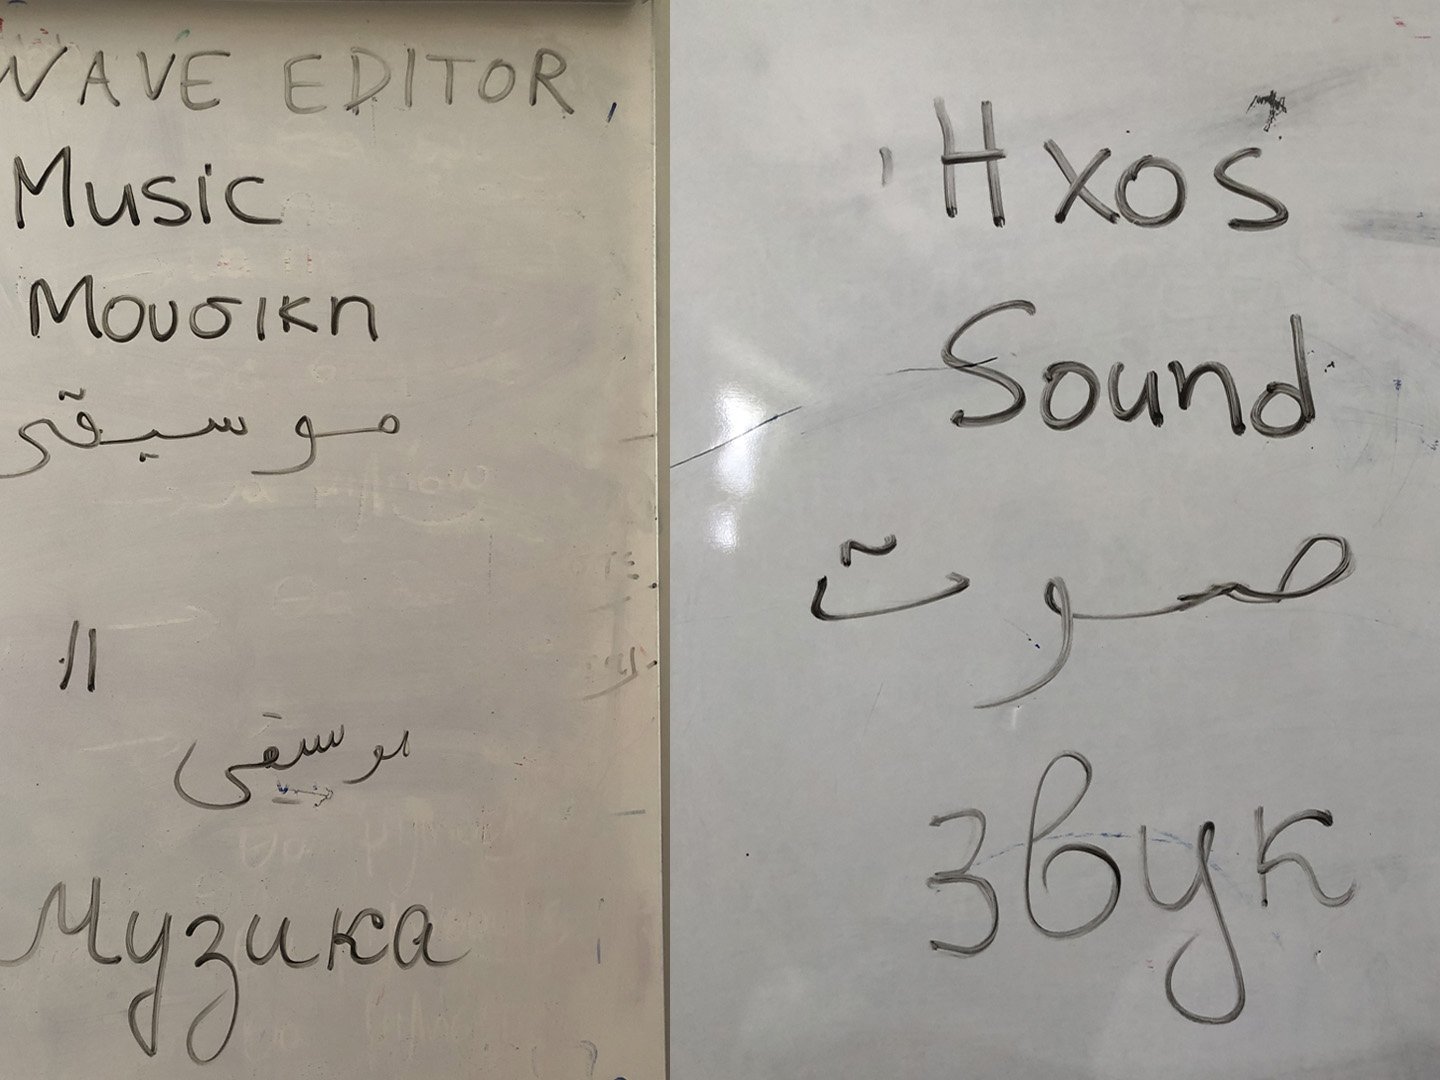 WAVE EDITOR,
Music
Μουσικη
موسيقى
//
موسيقى
Музика
'Ηχος
Sound
صوت
Звук